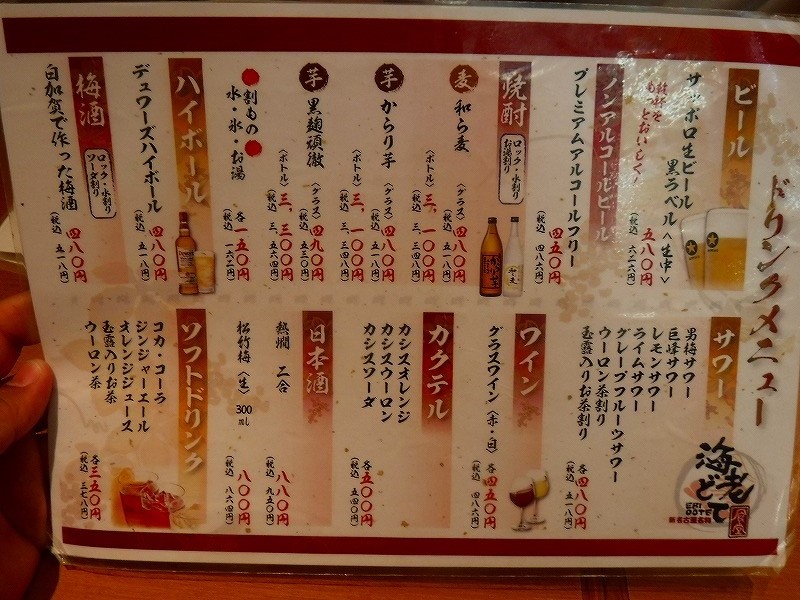 ドリンクメニュー
ビール
サッポロ生ビール
黒ラベル〈生中〉
五八〇円
(税込 六二六円)
ノンアルコールビール
プレミアムアルコールフリー
四五〇円
(税込 四八六円)
焼酎
ロック・水割り
お湯割り
麦 和ら麦
〈グラス〉四八〇円
(税込 五一八円)
〈ボトル〉三、一〇〇円
芋 からり芋
〈グラス〉四八〇円
(税込 五一八円)
〈ボトル〉三、一〇〇円
芋 黒麹頑徹
〈グラス〉四九〇円
(税込 五三〇円)
〈ボトル〉三、三〇〇円
(税込 三、五六四円)
●割もの●
水・氷・お湯
各一五〇円
(税込 一六二円)
ハイボール
デュワーズハイボール
四八〇円
(税込 五一八円)
梅酒
ロック・水割り
ソーダ割り
白加賀で作った梅酒
四八〇円
(税込 五一八円)
サワー
男梅サワー
巨峰サワー
レモンサワー
ライムサワー
グレープフルーツサワー
ウーロン茶割り
玉露入りお茶割り
各四八〇円
(税込 五一八円)
ワイン
グラスワイン〈赤・白〉
各四五〇円
(税込 四八六円)
カクテル
カシスオレンジ
カシスウーロン
カシスソーダ
各五〇〇円
(税込 五四〇円)
日本酒
熱燗 二合
八八〇円
(税込 九五〇円)
松竹梅〈生〉300ml
八〇〇円
(税込 八六四円)
ソフトドリンク
コカ・コーラ
ジンジャーエール
オレンジジュース
玉露入りお茶
ウーロン茶
各三五〇円
(税込 三七八円)
海老どて
食堂
EBI DOTE